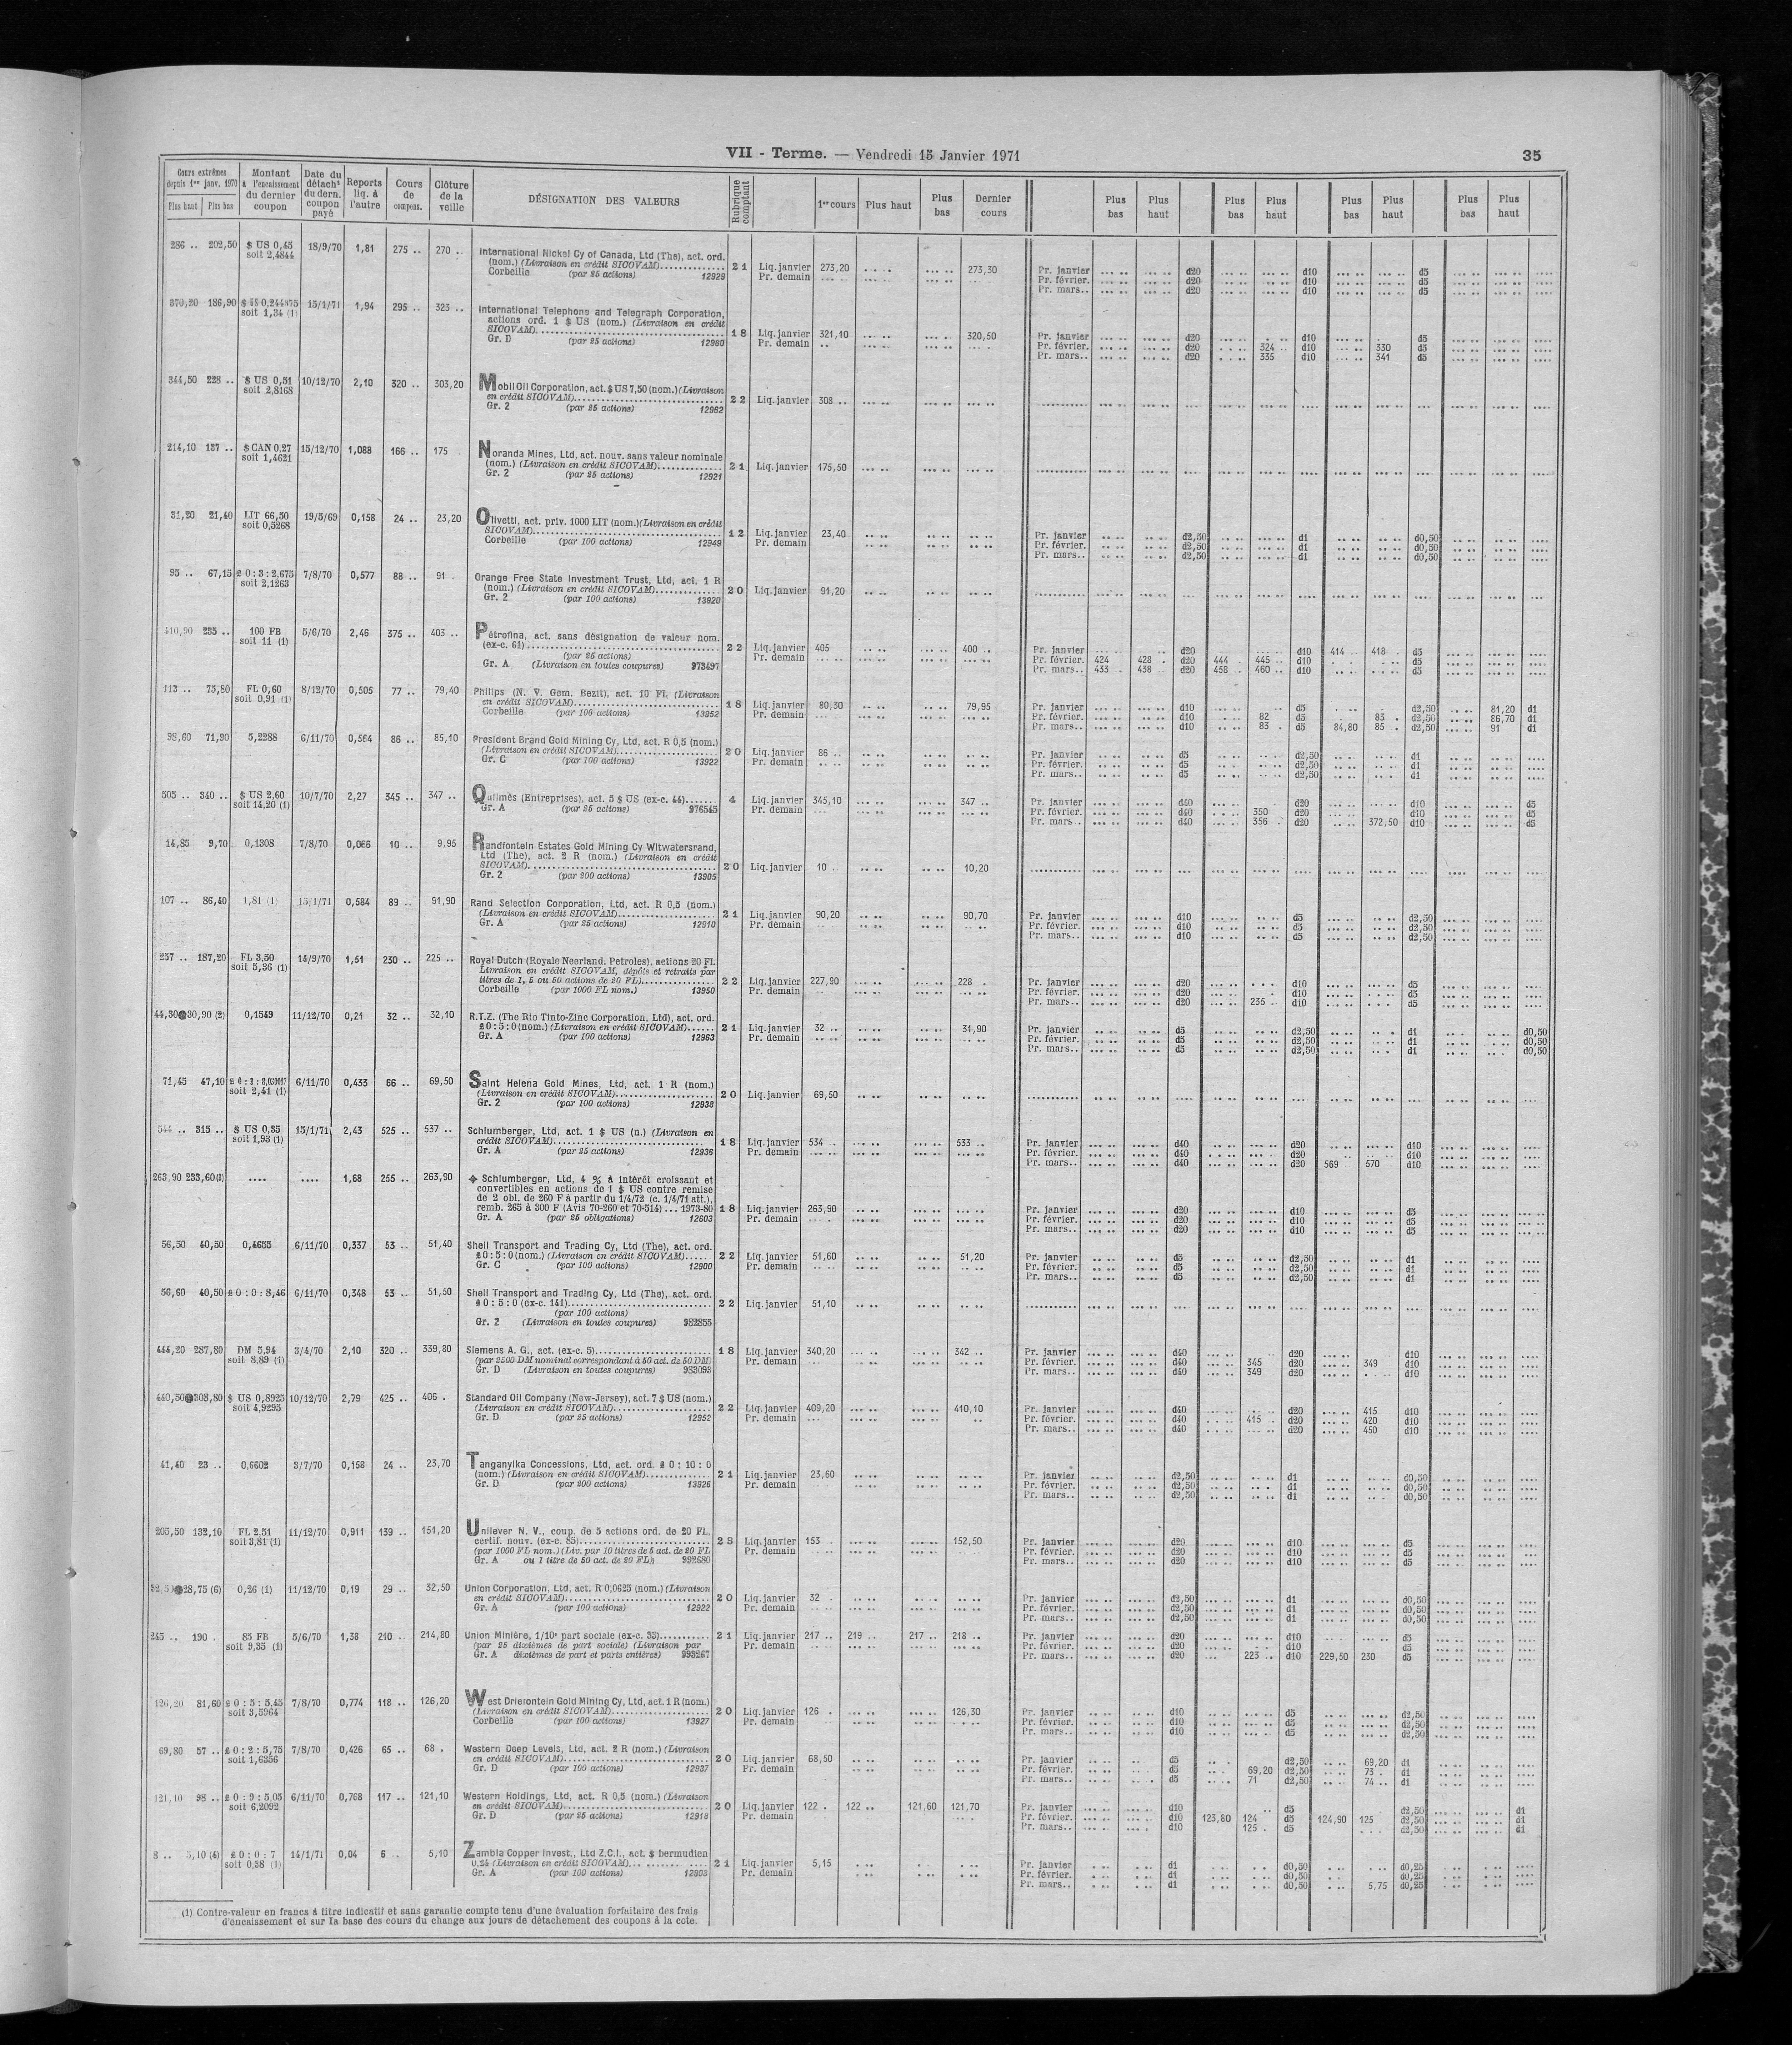 VII - Terme. — Vendredi 15 Janvier 1971
35
Cours extrêmes depuis 1er janv. 1970
Plus haut Plus bas
Montant à l'encaissement du dernier coupon
Date du détacht du dern. coupon payé
Reports liq. à l'autre
Cours de compens.
Clôture de la veille
DÉSIGNATION DES VALEURS
Rubrique comptant
1er cours Plus haut Plus bas Dernier cours
Plus bas Plus haut Plus bas Plus haut Plus bas Plus haut Plus bas Plus haut
286 .. 202,50 $ US 0,45 18/9/70 1,81 275 .. 270 ..
soit 2,4844
International Nickel Cy of Canada, Ltd (The), act. ord.
(nom.) (Livraison en crédit SICOVAM) 21 Liq. janvier 273,20 273,30 Pr. janvier d20 d10 d5
Corbeille (par 25 actions) 12929 Pr. demain Pr. février. d20 d10 d5
Pr. mars.. d20 d10 d5
370,20 186,90 15/1/71 1,94 295 .. 323 ..
soit 1,34 (1)
International Telephone and Telegraph Corporation,
actions ord. 1 $ US (nom.) (Livraison en crédit
SICOVAM) 18 Liq. janvier 321,10 320,50 Pr. janvier d20 d10 d5
Gr. D (par 25 actions) 12960 Pr. demain Pr. février. d20 324 .. d10 330 d5
Pr. mars.. d20 335 d10 341 d5
344,50 228 .. $ US 0,51 10/12/70 2,10 320 .. 303,20
soit 2,8168
Mobil Oil Corporation, act. $ US 7,50 (nom.) (Livraison
en crédit SICOVAM) 22 Liq. janvier 308 ..
Gr. 2 (par 25 actions) 12962
214,10 137 .. $ CAN 0,27 15/12/70 1,088 166 .. 175
soit 1,4621
Noranda Mines, Ltd, act. nouv. sans valeur nominale
(nom.) (Livraison en crédit SICOVAM) 21 Liq. janvier 175,50
Gr. 2 (par 25 actions) 12921
31,20 21,40 LIT 66,50 19/5/69 0,158 24 .. 23,20
soit 0,5268
Olivetti, act. priv. 1000 LIT (nom.) (Livraison en crédit
SICOVAM) 12 Liq. janvier 23,40 Pr. janvier d2,50 d1 d0,50
Corbeille (par 100 actions) 12949 Pr. demain Pr. février. d2,50 d1 d0,50
Pr. mars.. d2,50 d1 d0,50
95 .. 67,15 £ 0 : 3 : 2,675 7/8/70 0,577 88 .. 91 .
soit 2,1263
Orange Free State Investment Trust, Ltd, act. 1 R
(nom.) (Livraison en crédit SICOVAM) 20 Liq. janvier 91,20
Gr. 2 (par 100 actions) 13920
410,90 285 .. 100 FB 5/6/70 2,46 375 .. 403 ..
soit 11 (1)
Pétrofina, act. sans désignation de valeur nom.
(ex-c. 61) 22 Liq. janvier 405 400 .. Pr. janvier d20 d10 414 .. 418 . d5
(par 25 actions) Pr. demain Pr. février. 424 428 . d20 444 . 445 .. d10 d5
Gr. A (Livraison en toutes coupures) 973497 Pr. mars.. 433 . 438 .. d20 458 .. 460 .. d10 d5
113 .. 75,80 FL 0,60 8/12/70 0,505 77 .. 79,40
soit 0,91 (1)
Philips (N. V. Gem. Bezit), act. 10 FL (Livraison
en crédit SICOVAM) 18 Liq. janvier 80,30 79,95 Pr. janvier d10 d5 d2,50 81,20 d1
Corbeille (par 100 actions) 13952 Pr. demain Pr. février. d10 82 d5 83 .. d2,50 86,70 d1
Pr. mars.. d10 83 . d5 84,80 85 . d2,50 91 d1
98,60 71,90 5,2288 6/11/70 0,564 86 .. 85,10
President Brand Gold Mining Cy, Ltd, act. R 0,5 (nom.)
(Livraison en crédit SICOVAM) 20 Liq. janvier 86 .. Pr. janvier d5 d2,50 d1
Gr. C (par 100 actions) 13922 Pr. demain Pr. février. d5 d2,50 d1
Pr. mars.. d5 d2,50 d1
505 .. 340 .. $ US 2,60 10/7/70 2,27 345 .. 347 ..
soit 14,20 (1)
Quilmès (Entreprises), act. 5 $ US (ex-c. 44) 4 Liq. janvier 345,10 347 .. Pr. janvier d40 d20 d10 d5
Gr. A (par 25 actions) 976545 Pr. demain Pr. février. d40 350 d20 d10 d5
Pr. mars.. d40 356 . d20 372,50 d10 d5
14,85 9,70 0,1308 7/8/70 0,066 10 .. 9,95
Randfontein Estates Gold Mining Cy Witwatersrand,
Ltd (The), act. 2 R (nom.) (Livraison en crédit
SICOVAM) 20 Liq. janvier 10 10,20
Gr. 2 (par 200 actions) 13905
107 .. 86,40 1,81 (1) 15/1/71 0,584 89 .. 91,90
Rand Selection Corporation, Ltd, act. R 0,5 (nom.)
(Livraison en crédit SICOVAM) 21 Liq. janvier 90,20 90,70 Pr. janvier d10 d5 d2,50
Gr. A (par 25 actions) 12910 Pr. demain Pr. février. d10 d5 d2,50
Pr. mars.. d10 d5 d2,50
257 .. 187,20 FL 3,50 14/9/70 1,51 230 .. 225 ..
soit 5,36 (1)
Royal Dutch (Royale Neerland. Petroles), actions 20 FL
Livraison en crédit SICOVAM, dépôts et retraits par
titres de 1, 5 ou 50 actions de 20 FL) 22 Liq. janvier 227,90 228 . Pr. janvier d20 d10 d5
Corbeille (par 1000 FL nom.) 13950 Pr. demain Pr. février. d20 d10 d5
Pr. mars.. d20 235 .. d10 d5
44,30 30,90 (2) 0,1549 11/12/70 0,21 32 .. 32,10
R.T.Z. (The Rio Tinto-Zinc Corporation, Ltd), act. ord.
£ 0 : 5 : 0 (nom.) (Livraison en crédit SICOVAM) 21 Liq. janvier 32 .. 31,90 Pr. janvier d5 d2,50 d1 d0,50
Gr. A (par 100 actions) 12963 Pr. demain Pr. février. d5 d2,50 d1 d0,50
Pr. mars.. d5 d2,50 d1 d0,50
71,45 47,10 6/11/70 0,433 66 .. 69,50
soit 2,41 (1)
Saint Helena Gold Mines, Ltd, act. 1 R (nom.)
(Livraison en crédit SICOVAM) 20 Liq. janvier 69,50
Gr. 2 (par 100 actions) 12938
544 .. 315 .. $ US 0,35 15/1/71 2,43 525 .. 537 ..
soit 1,93 (1)
Schlumberger, Ltd, act. 1 $ US (n.) (Livraison en
crédit SICOVAM) 18 Liq. janvier 534 .. 533 .. Pr. janvier d40 d20 d10
Gr. A (par 25 actions) 12936 Pr. demain Pr. février. d40 d20 d10
Pr. mars.. d40 d20 569 570 d10
263,90 233,60(3) .... .... 1,68 255 .. 263,90
Schlumberger, Ltd, 4 % à intérêt croissant et
convertibles en actions de 1 $ US contre remise
de 2 obl. de 260 F à partir du 1/4/72 (c. 1/4/71 att.),
remb. 265 à 300 F (Avis 70-260 et 70-514) ... 1973-80 18 Liq. janvier 263,90 Pr. janvier d20 d10 d5
Gr. A (par 25 obligations) 12603 Pr. demain Pr. février. d20 d10 d5
Pr. mars.. d20 d10 d5
56,50 40,50 0,4655 6/11/70 0,337 53 .. 51,40
Shell Transport and Trading Cy, Ltd (The), act. ord.
£ 0 : 5 : 0 (nom.) (Livraison en crédit SICOVAM) 22 Liq. janvier 51,60 51,20 Pr. janvier d5 d2,50 d1
Gr. C (par 100 actions) 12900 Pr. demain Pr. février. d5 d2,50 d1
Pr. mars.. d5 d2,50 d1
56,60 40,50 £ 0 : 0 : 8,46 6/11/70 0,348 53 .. 51,50
Shell Transport and Trading Cy, Ltd (The), act. ord.
£ 0 : 5 : 0 (ex-c. 141) 22 Liq. janvier 51,10
(par 100 actions)
Gr. 2 (Livraison en toutes coupures) 982855
444,20 287,80 DM 5,94 3/4/70 2,10 320 .. 339,80
soit 8,89 (1)
Siemens A. G., act. (ex-c. 5) 18 Liq. janvier 340,20 342 .. Pr. janvier d40 d20 d10
(par 2500 DM nominal correspondant à 50 act. de 50 DM) Pr. demain Pr. février. d40 345 d20 349 d10
Gr. D (Livraison en toutes coupures) 983093 Pr. mars.. d40 349 d20 d10
440,50 308,80 $ US 0,8925 10/12/70 2,79 425 .. 406 .
soit 4,9295
Standard Oil Company (New-Jersey), act. 7 $ US (nom.)
(Livraison en crédit SICOVAM) 22 Liq. janvier 409,20 410,10 Pr. janvier d40 d20 415 d10
Gr. D (par 25 actions) 12952 Pr. demain Pr. février. d40 415 .. d20 420 d10
Pr. mars.. d40 d20 450 d10
41,40 23 .. 0,6602 3/7/70 0,158 24 .. 23,70
Tanganyika Concessions, Ltd, act. ord. £ 0 : 10 : 0
(nom.) (Livraison en crédit SICOVAM) 21 Liq. janvier 23,60 Pr. janvier d2,50 d1 d0,50
Gr. D (par 200 actions) 13926 Pr. demain Pr. février. d2,50 d1 d0,50
Pr. mars.. d2,50 d1 d0,50
205,50 132,10 FL 2,51 11/12/70 0,911 139 .. 151,20
soit 3,81 (1)
Unilever N. V., coup. de 5 actions ord. de 20 FL,
certif. nouv. (ex-c. 85) 23 Liq. janvier 153 .. 152,50 Pr. janvier d20 d10 d5
(par 1000 FL nom.) (Liv. par 10 titres de 5 act. de 20 FL Pr. demain Pr. février. d20 d10 d5
Gr. A ou 1 titre de 50 act. de 20 FL) 992680 Pr. mars.. d20 d10 d5
28,75 (6) 0,26 (1) 11/12/70 0,19 29 .. 32,50
Union Corporation, Ltd, act. R 0,0625 (nom.) (Livraison
en crédit SICOVAM) 20 Liq. janvier 32 . Pr. janvier d2,50 d1 d0,50
Gr. A (par 100 actions) 12922 Pr. demain Pr. février. d2,50 d1 d0,50
Pr. mars.. d2,50 d1 d0,50
245 .. 190 . 85 FB 5/6/70 1,38 210 .. 214,80
soit 9,35 (1)
Union Minière, 1/10e part sociale (ex-c. 33) 21 Liq. janvier 217 .. 219 .. 217 .. 218 .. Pr. janvier d20 d10 d5
(par 25 dixièmes de part sociale) (Livraison par Pr. demain Pr. février. d20 d10 d5
Gr. A dixièmes de part et parts entières) 993267 Pr. mars.. d20 223 .. d10 229,50 230 d5
126,20 81,60 £ 0 : 5 : 5,45 7/8/70 0,774 118 .. 126,20
soit 3,5964
West Driefontein Gold Mining Cy, Ltd, act. 1 R (nom.)
(Livraison en crédit SICOVAM) 20 Liq. janvier 126 . 126,30 Pr. janvier d10 d5 d2,50
Corbeille (par 100 actions) 13927 Pr. demain Pr. février. d10 d5 d2,50
Pr. mars.. d10 d5 d2,50
69,80 57 .. £ 0 : 2 : 5,75 7/8/70 0,426 65 .. 68 .
soit 1,6356
Western Deep Levels, Ltd, act. 2 R (nom.) (Livraison
en crédit SICOVAM) 20 Liq. janvier 68,50 Pr. janvier d5 d2,50 69,20 d1
Gr. D (par 100 actions) 12937 Pr. demain Pr. février. d5 69,20 d2,50 73 . d1
Pr. mars.. d5 71 d2,50 74 .. d1
121,10 98 .. £ 0 : 9 : 5,05 6/11/70 0,768 117 .. 121,10
soit 6,2092
Western Holdings, Ltd, act. R 0,5 (nom.) (Livraison
en crédit SICOVAM) 20 Liq. janvier 122 . 122 .. 121,60 121,70 Pr. janvier d10 d5 d2,50 d1
Gr. D (par 25 actions) 12918 Pr. demain Pr. février. d10 123,80 124 .. d5 124,90 125 d2,50 d1
Pr. mars.. d10 125 . d5 d2,50 d1
8 .. 5,10 (4) £ 0 : 0 : 7 14/1/71 0,04 6 .. 5,10
soit 0,38 (1)
Zambia Copper Invest., Ltd Z.C.I., act. $ bermudien
0,24 (Livraison en crédit SICOVAM) 21 Liq. janvier 5,15 Pr. janvier d1 d0,50 d0,25
Gr. A (par 100 actions) 12903 Pr. demain Pr. février. d1 d0,50 d0,25
Pr. mars.. d1 d0,50 5,75 d0,25
(1) Contre-valeur en francs à titre indicatif et sans garantie compte tenu d'une évaluation forfaitaire des frais
d'encaissement et sur la base des cours du change aux jours de détachement des coupons à la cote.